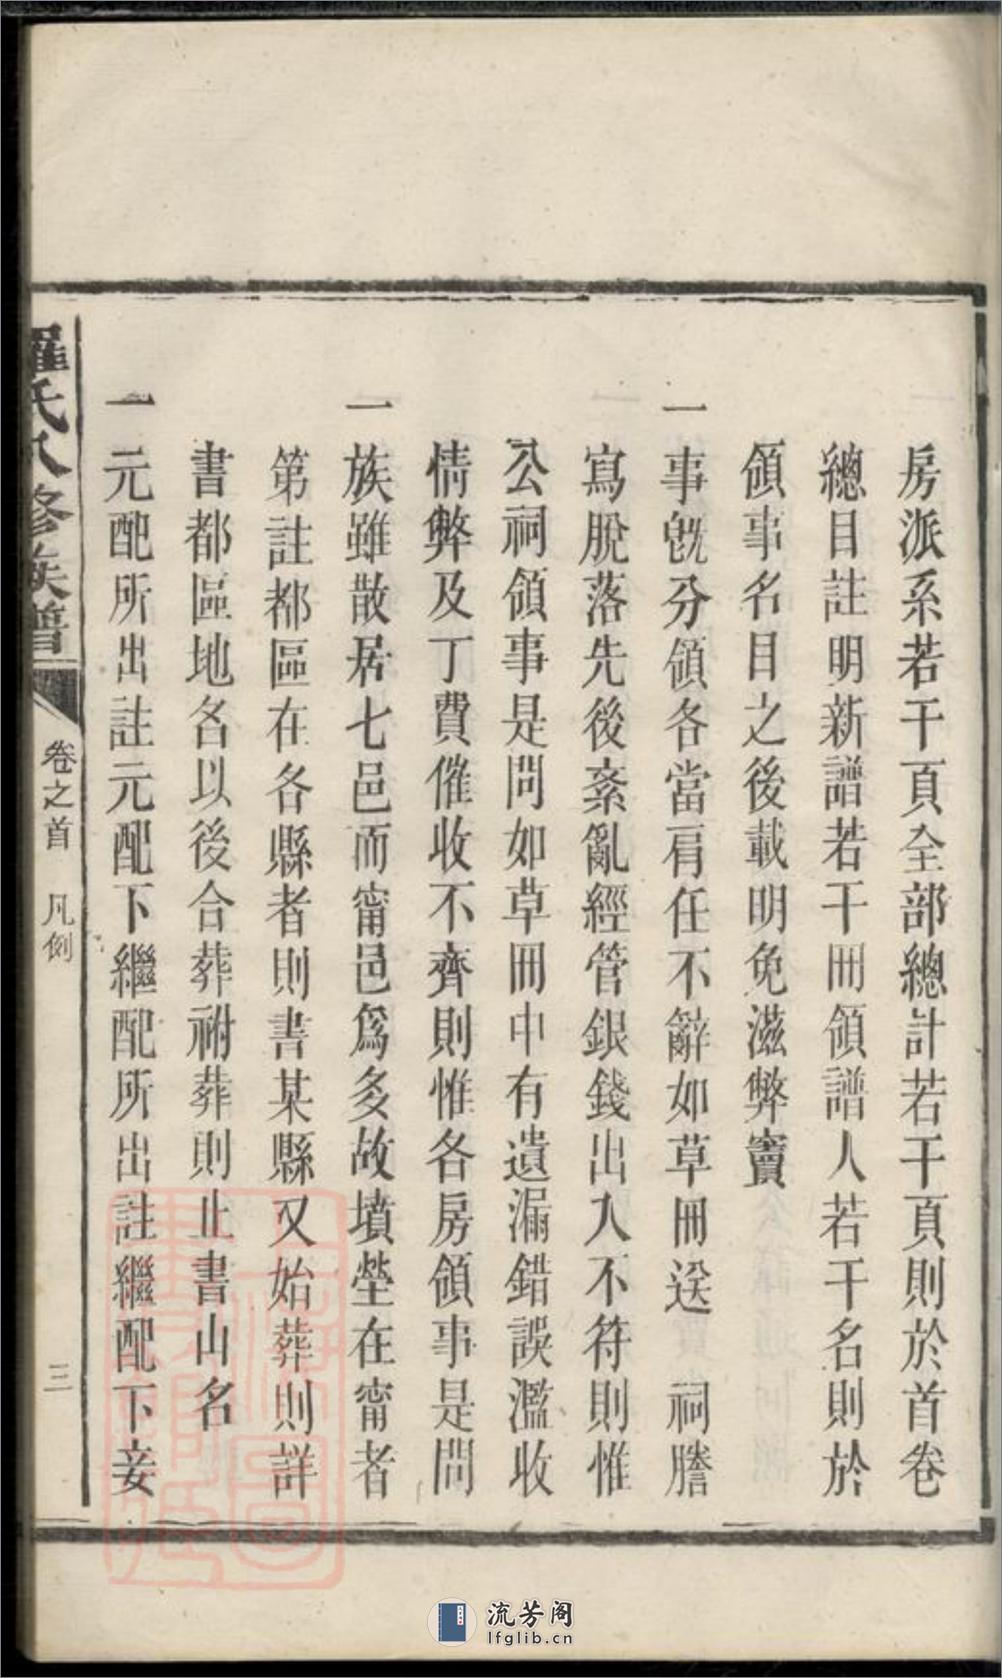 房派系若干頁全部總計若干頁則於首卷
總目註明新譜若干冊領譜人若干名則於
領事名目之後載明免滋弊竇
一事旣分領各當肩任不辭如草冊送　祠謄
寫脫落先後紊亂經管銀錢出入不符則惟
公祠領事是問如草冊中有遺漏錯誤濫收
情弊及丁費催收不齊則惟各房領事是問
一族雖散居七邑而甯邑爲多故墳塋在甯者
第註都區在各縣者則書某縣又始葬則詳
書都區地名以後合葬祔葬則止書山名
一元配所出註元配下繼配所出註繼配下妾
羅氏八修族譜
卷之首　凡例
三
流芳阁
lfglib.cn